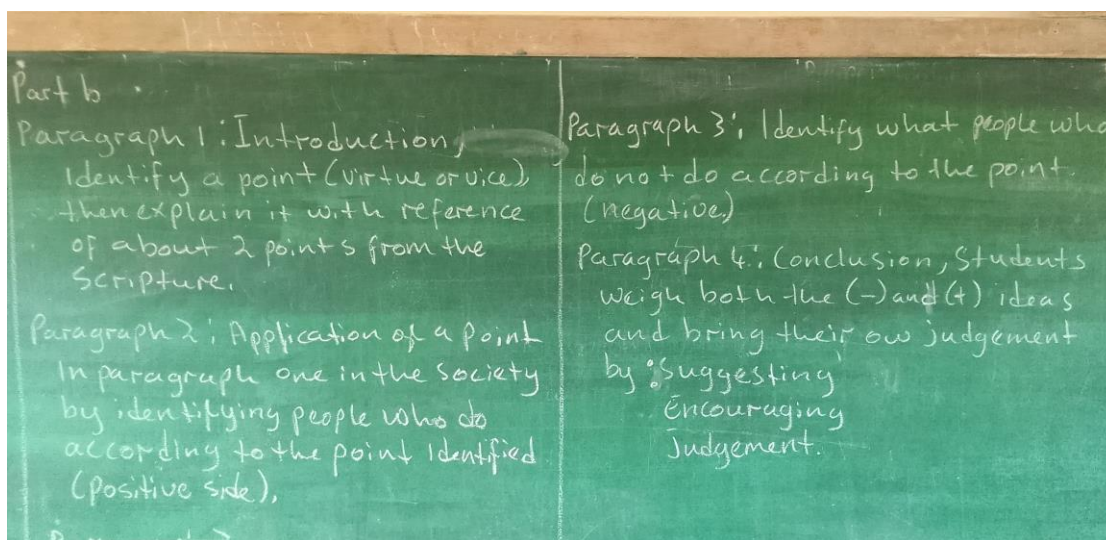 Part b
Paragraph 1: Introduction,
Identify a point (virtue or vice),
then explain it with reference
of about 2 points from the
Scripture.
Paragraph 2: Application of a point
In paragraph one in the society
by identifying people who do
according to the point Identified
(positive side),
Paragraph 3: Identify what people who
do not do according to the point.
(negative.)
Paragraph 4: Conclusion, Students
weigh both the (-) and (+) ideas
and bring their ow judgement
by: Suggesting
Encouraging
Judgement.